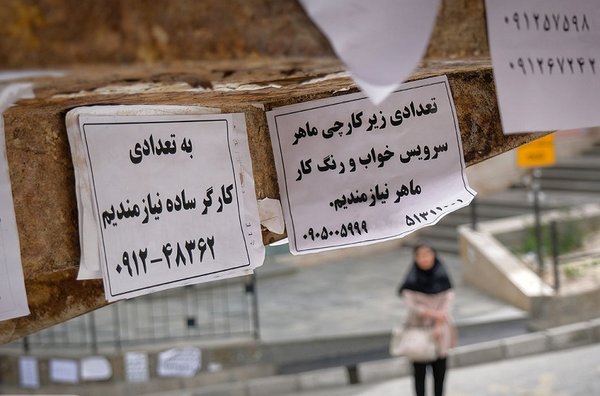 به تعدادی
کارگر ساده نیازمندیم
۰۹۱۲-۴۸۳۶۲
تعدادی زیر کارچی ماهر
سرویس خواب و رنگ کار
ماهر نیازمندیم.
۰۹۰۵۰۰۵۹۹۹
۰۹۱۲۵۷۵۹۸
۰۹۱۲۶۷۲۴۲